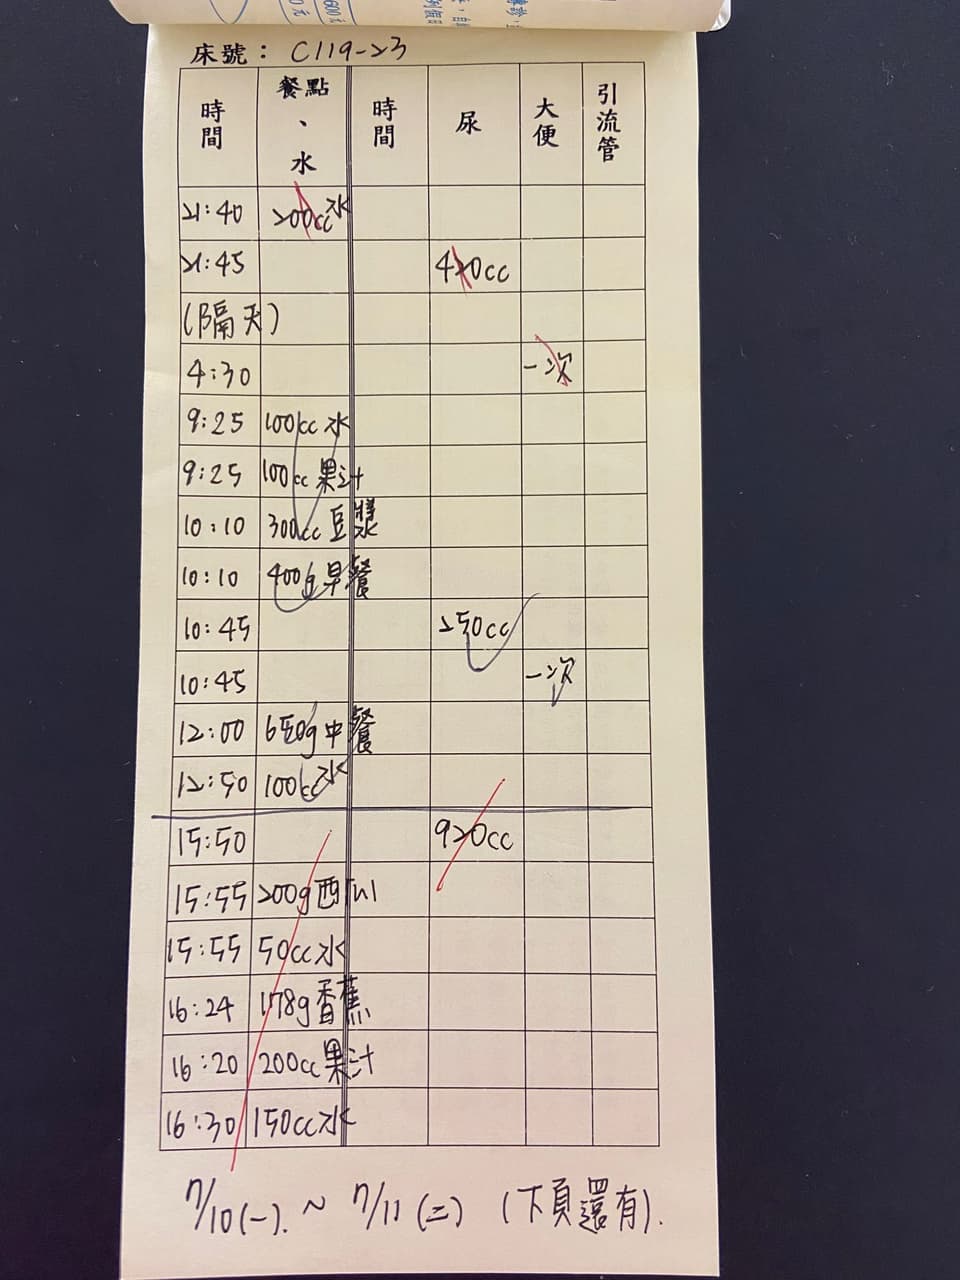 600元
0元
床號： C119-23
時間 餐點、水 時間 尿 大便 引流管
21:40 200cc水
21:45 420cc
(隔天)
4:30 一次
9:25 100cc水
9:25 100cc果汁
10:10 300cc豆漿
10:10 400g早餐
10:45 250cc
10:45 一次
12:00 650g中餐
12:50 100cc水
15:50 920cc
15:55 200g西瓜
15:55 50cc水
16:24 178g香蕉
16:20 200cc果汁
16:30 150cc水
7/10(一). ~ 7/11(二) (下頁還有).